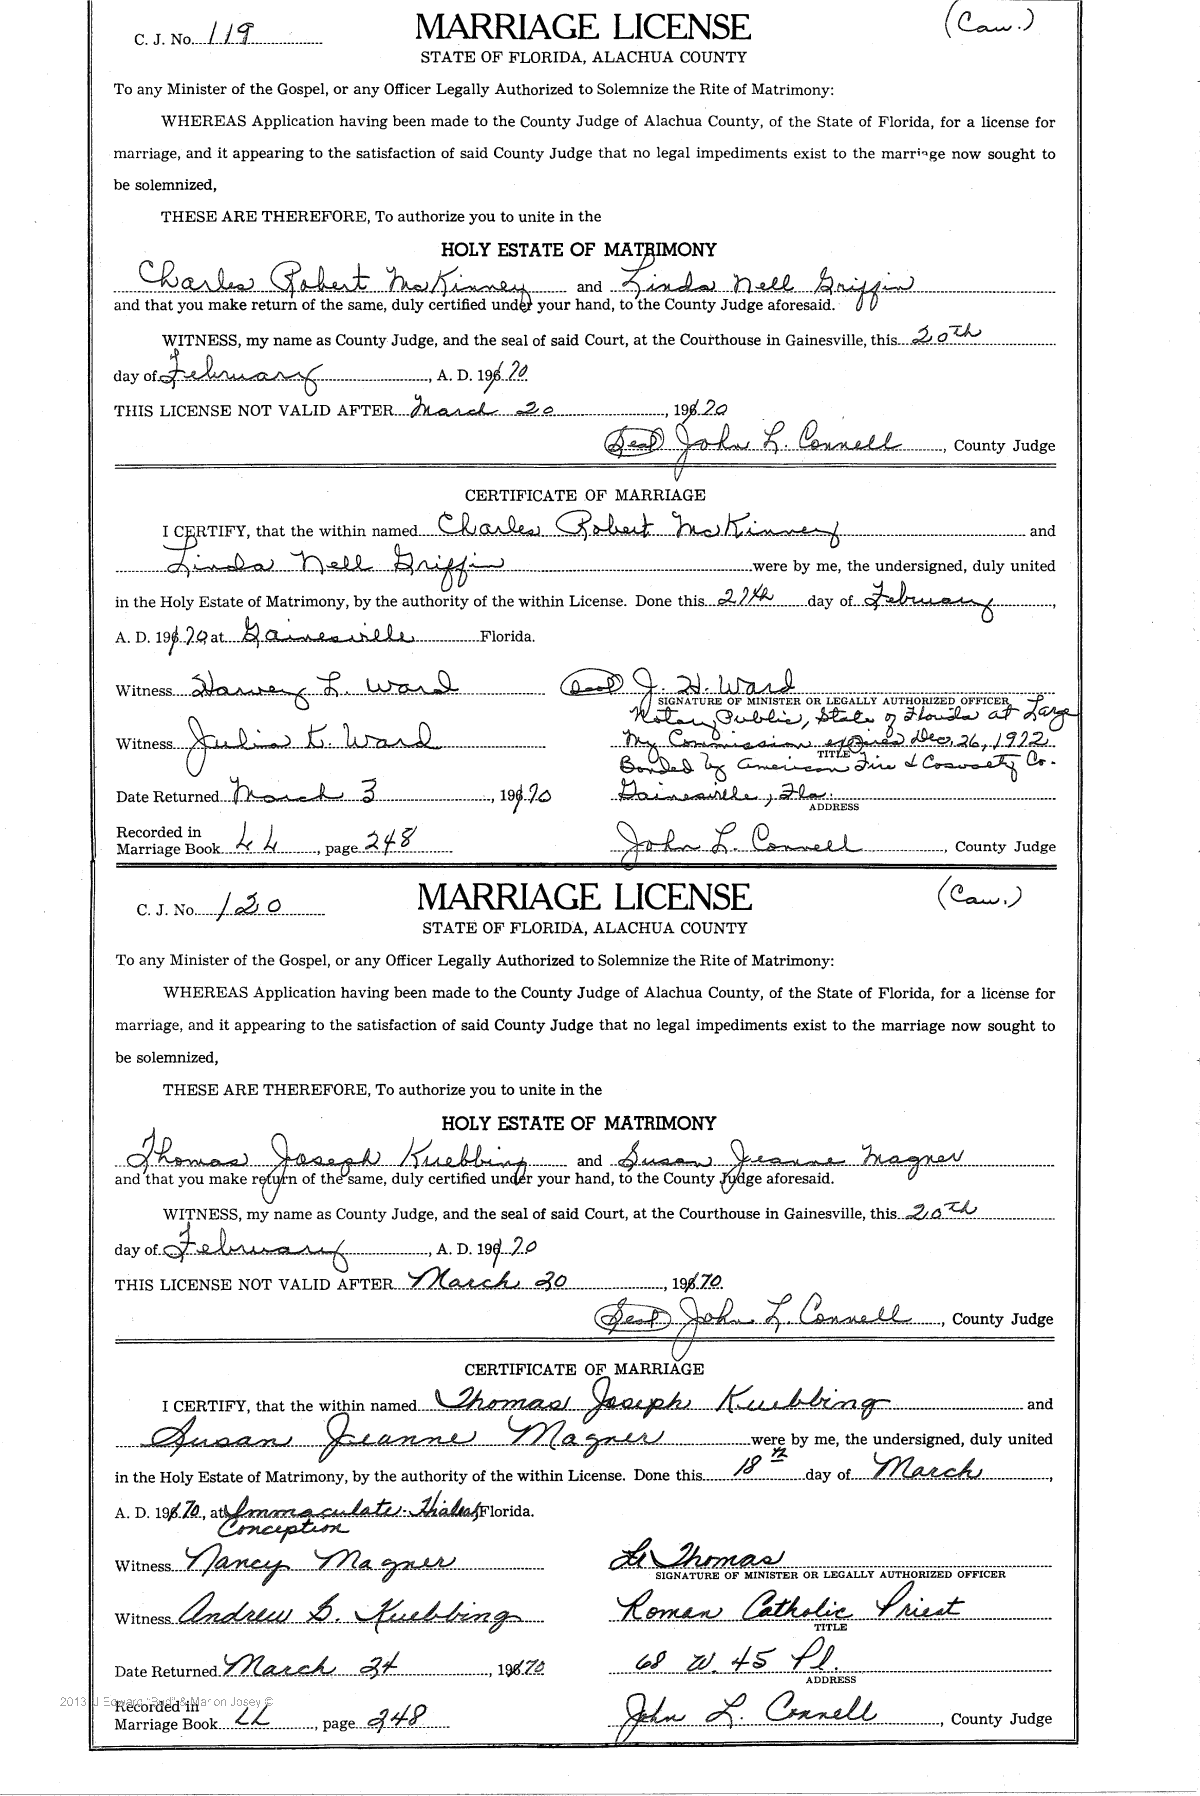 C. J. No. 119
MARRIAGE LICENSE
(Cau.)
STATE OF FLORIDA, ALACHUA COUNTY
To any Minister of the Gospel, or any Officer Legally Authorized to Solemnize the Rite of Matrimony:
WHEREAS Application having been made to the County Judge of Alachua County, of the State of Florida, for a license for
marriage, and it appearing to the satisfaction of said County Judge that no legal impediments exist to the marriage now sought to
be solemnized,
THESE ARE THEREFORE, To authorize you to unite in the
HOLY ESTATE OF MATRIMONY
Charles Robert McKinney and Linda Nell Griffin
and that you make return of the same, duly certified under your hand, to the County Judge aforesaid.
WITNESS, my name as County Judge, and the seal of said Court, at the Courthouse in Gainesville, this 20th
day of February, A. D. 1970
THIS LICENSE NOT VALID AFTER March 20, 1970
(Seal) John L. Connell, County Judge
CERTIFICATE OF MARRIAGE
I CERTIFY, that the within named Charles Robert McKinney and
Linda Nell Griffin were by me, the undersigned, duly united
in the Holy Estate of Matrimony, by the authority of the within License. Done this 27th day of February,
A. D. 1970 at Gainesville Florida.
Witness Harvey L. Ward (Seal) J. H. Ward
SIGNATURE OF MINISTER OR LEGALLY AUTHORIZED OFFICER
Notary Public, State of Florida at Large
Witness Julia K. Ward My Commission expires Dec. 26, 1972
TITLE
Bonded by American Fire & Casualty Co.
Date Returned March 3, 1970 Gainesville, Fla.
ADDRESS
Recorded in
Marriage Book LL, page 248 John L. Connell, County Judge
C. J. No. 120
MARRIAGE LICENSE
(Cau.)
STATE OF FLORIDA, ALACHUA COUNTY
To any Minister of the Gospel, or any Officer Legally Authorized to Solemnize the Rite of Matrimony:
WHEREAS Application having been made to the County Judge of Alachua County, of the State of Florida, for a license for
marriage, and it appearing to the satisfaction of said County Judge that no legal impediments exist to the marriage now sought to
be solemnized,
THESE ARE THEREFORE, To authorize you to unite in the
HOLY ESTATE OF MATRIMONY
Thomas Joseph Kuebbing and Susan Jeanne Magner
and that you make return of the same, duly certified under your hand, to the County Judge aforesaid.
WITNESS, my name as County Judge, and the seal of said Court, at the Courthouse in Gainesville, this 20th
day of February, A. D. 1970
THIS LICENSE NOT VALID AFTER March 20, 1970
(Seal) John L. Connell, County Judge
CERTIFICATE OF MARRIAGE
I CERTIFY, that the within named Thomas Joseph Kuebbing and
Susan Jeanne Magner were by me, the undersigned, duly united
in the Holy Estate of Matrimony, by the authority of the within License. Done this 18th day of March,
A. D. 1970, at Immaculate Hialeah Florida.
Conception
Witness Nancy Magner Thomas
SIGNATURE OF MINISTER OR LEGALLY AUTHORIZED OFFICER
Witness Andrew G. Kuebbing Roman Catholic Priest
TITLE
Date Returned March 24, 1970 68 W. 45 Pl.
ADDRESS
2013 J Edward "Bud" & Marion Josey ©
Recorded in
Marriage Book LL, page 248 John L. Connell, County Judge